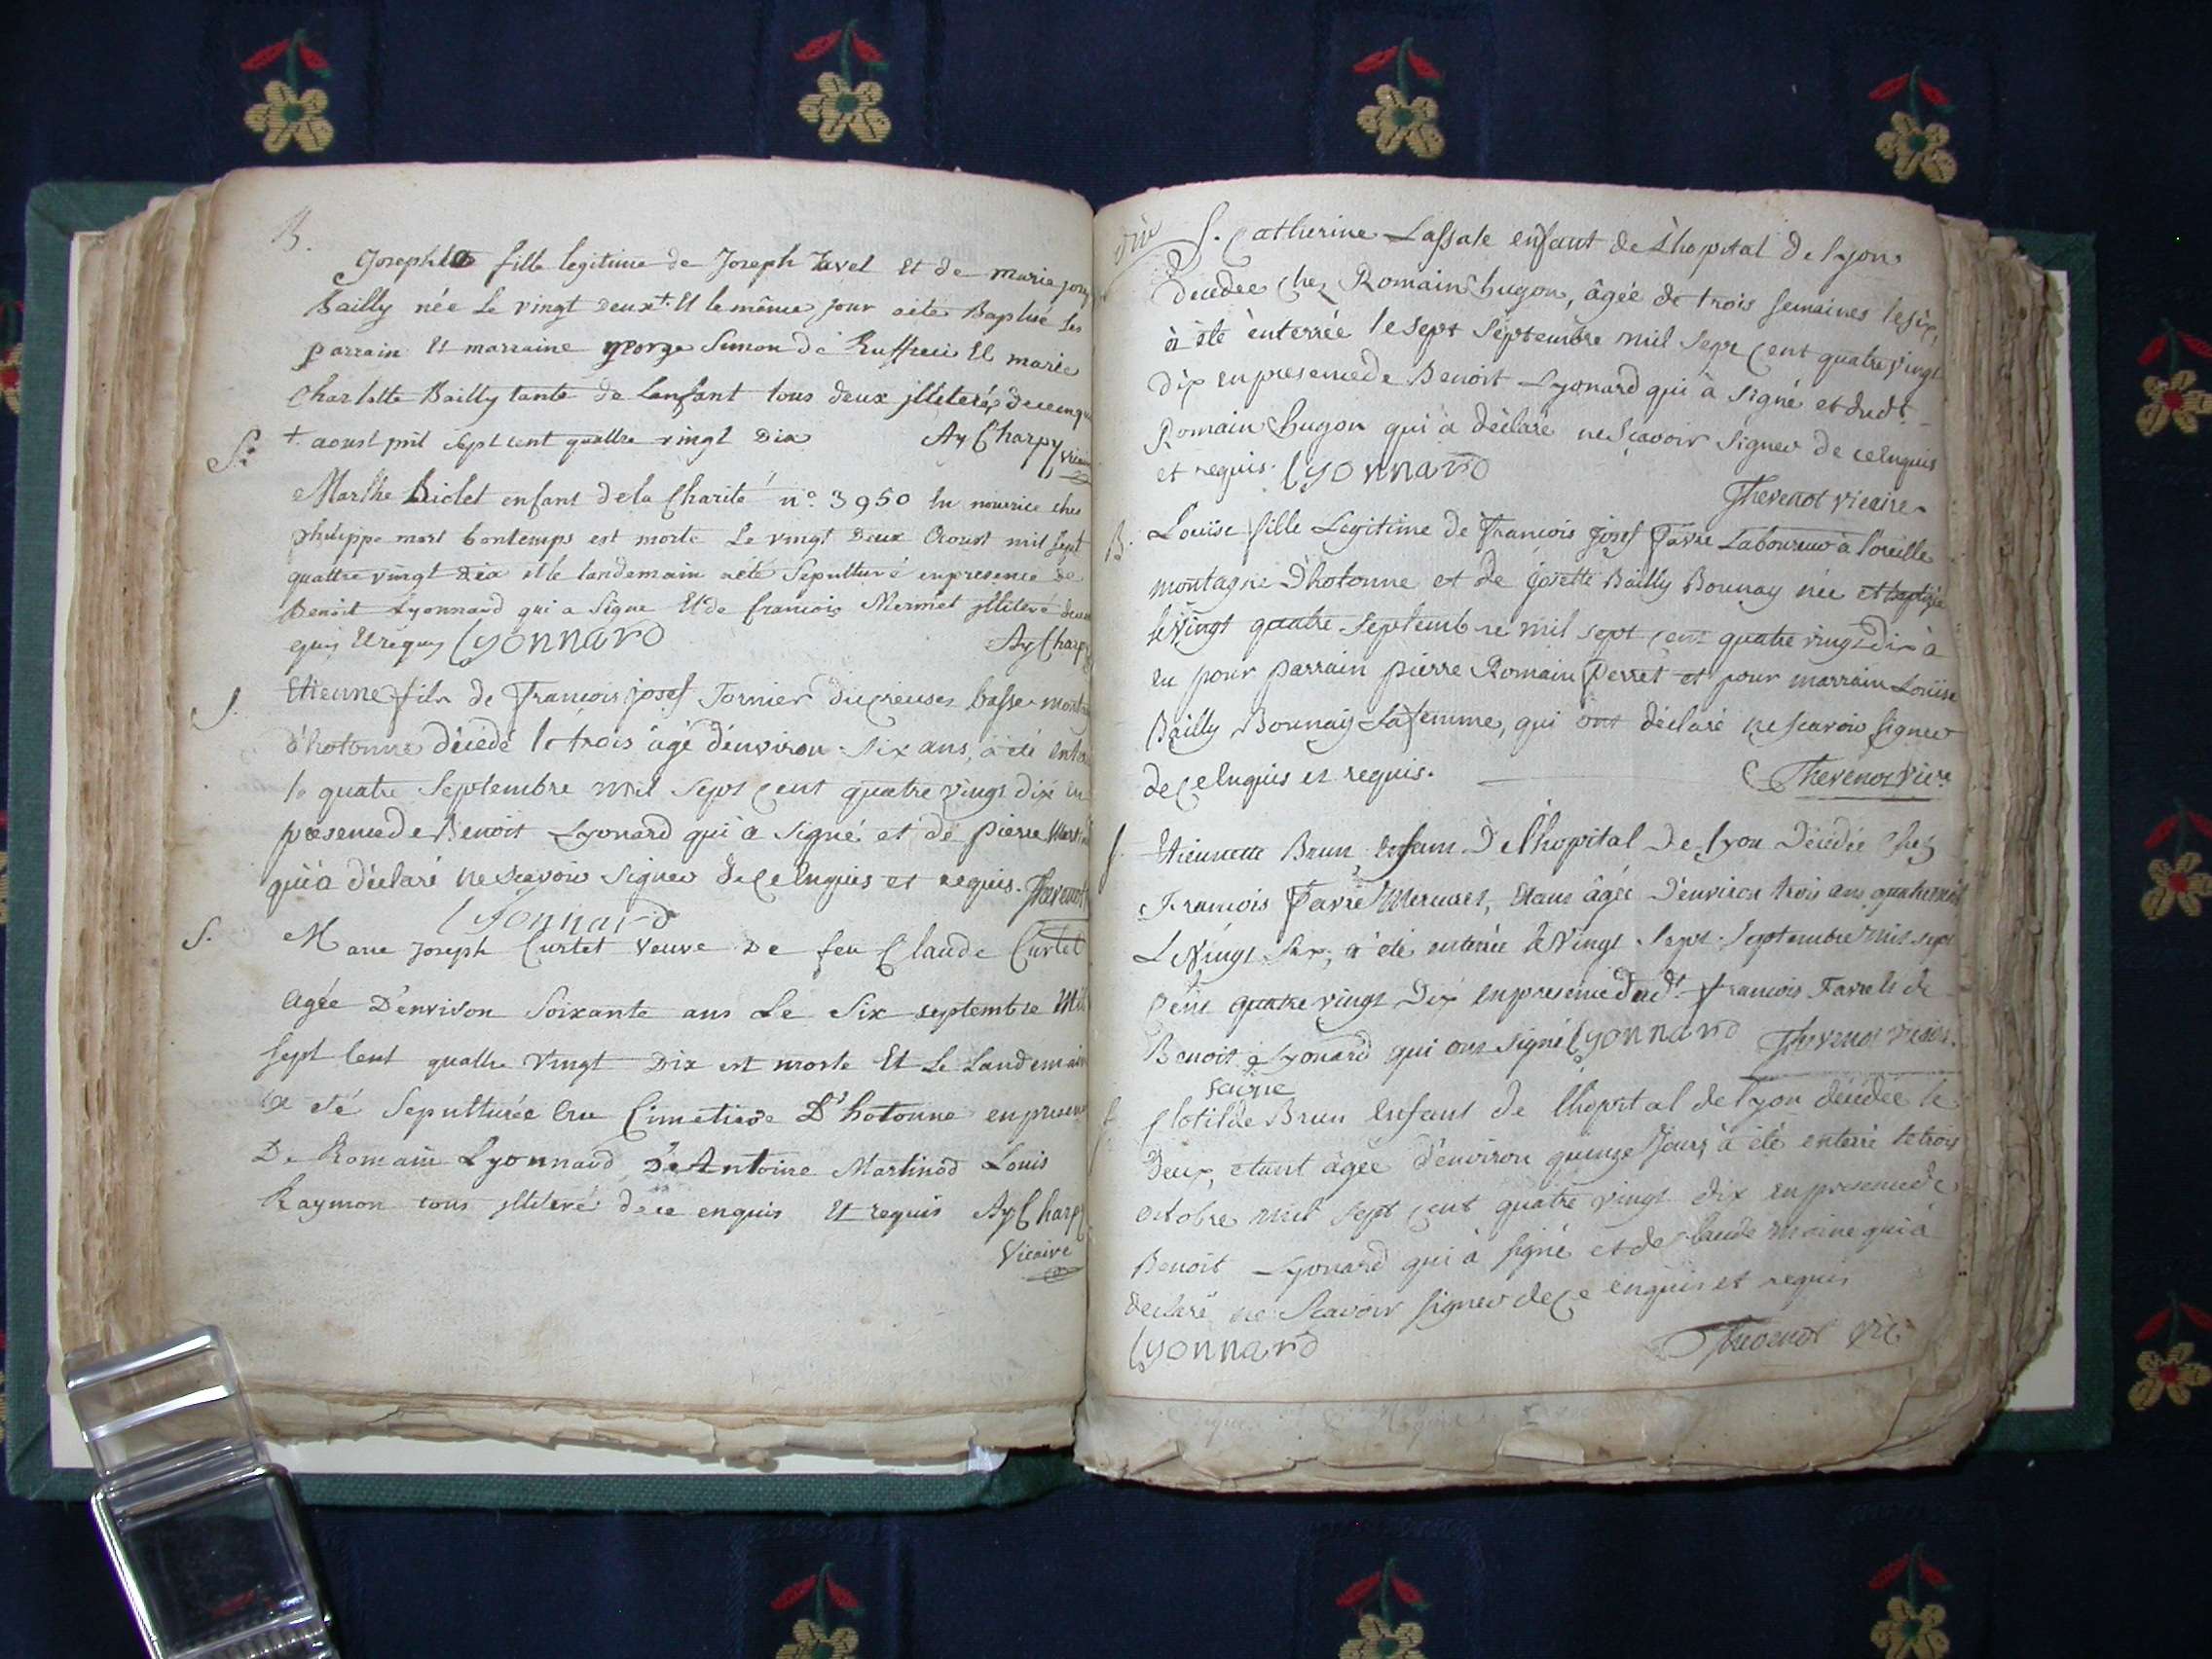 B.
Josephte fille legitime de Joseph Juvel Et de marie
Bailly née Le vingt Deux +. Et le même jour aété Baptisé Les
parrain Et marraine george Simon de Ruffieu Et marie
Charlotte Bailly tante de Lenfant tous deux illiteré de ce enquis
+. aoust mil Sept cent quattre vingt Dix Ay Charpy vicaire
S.
Marthe enfant dela Charité n° 3950 En nourrice chez
philippe mart bontemps est morte Le vingt Deux Aoust mil Sept
quattre vingt Dix et le landemain aété Sepulturé enpresence de
Benoit Lyonnard qui a Signe Et de francois Mermet illiteré
equis Et requis Lyonnard Ay Charpy
S.
Etienne fils de François josef Tornier basse
d'hotonne décédé le trois âgé d'environ six ans, a été
le quatre Septembre mil Sept cent quatre vingt dix en
presence de Benoit Lyonard qui a Signé et de pierre
qui a déclaré ne Scavoir Signer de ce enquis et requis. Thevenot
Lyonnard
S.
Marie Joseph Curtet veuve De feu Claude Curtet
Agée D'environ Soixante ans Le Six septembre Mil
Sept Cent quattre Vingt Dix est morte Et Le Landemain
a eté Sepulturée Au Cimetiere D'hotonne en presence
De Romain Lyonnard De Antoine Martinod Louis
Raymon tous illiteré de ce enquis Et requis Ay Charpy
Vicaire
S. Catherine Lassale enfant de L'hopital de Lyon
décédée chez Romain hugon, âgée de trois semaines le six,
à été enterrée le sept Septembre mil Sept cent quatre vingt
dix en presence de Benoit Lyonard qui à signé et dudt
Romain hugon qui à déclaré ne Scavoir Signer de ce enquis
et requis. Lyonnard
Thevenot vicaire
B.
Louise fille Legitime de François josef Favre Laboureur à
montagne D'hotonne et de josette Bailly Bonnay née et baptisée
le vingt quatre Septembre mil sept cent quatre vingt dix à
eu pour parrain pierre Romain Perret et pour marraine Louise
Bailly Bonnay sa femme, qui ont déclaré ne scavoir signer
de ce enquis et requis. Thevenot vic.re
S.
Etiennette Brun enfant De l'hopital de Lyon Décédée chez
François Favre, Etant âgée D'environ trois ans quatre mois
Le Vingt Six, a été enterrée le Vingt Sept Septembre mil sept
Cent quatre vingt Dix en presence dudt. François Favre et de
Benoit Lyonard qui ont signé Lyonnard Thevenot vicaire.
S.
Clotilde Brun enfant de l'hopital de Lyon décédée le
deux, etant âgée d'environ quinze jours à été enterré le trois
octobre mil sept cent quatre vingt dix en presence de
Benoit Lyonard qui à signé et de Claude moine qui à
declaré ne Scavoir signer de ce enquis et requis
Lyonnard Thevenot vic